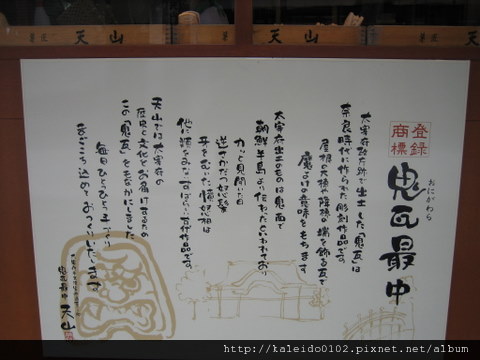 天山
天山
天山
登録
商標
おにがわら
鬼瓦最中
大宰府政庁跡で出土した「鬼瓦」は
奈良時代に作られた彫刻作品です
屋根の大棟や降棟の端を飾る瓦で
魔よけの意味をもちます
大宰府出土のものは鬼面で
朝鮮半島より伝わったといわれており
カッと見開いた目
逆さかだつ怒髪
牙をむいた憤怒相は
他に類をみないすばらしい古代作品です
天山では大宰府の
歴史と文化をお届けするため
この「鬼瓦」をもなかにしました
毎日ひとつひとつ手づくり
まごころ込めておつくりしています
鬼瓦最中 天山
http://kaleido0102.pixnet.net/album